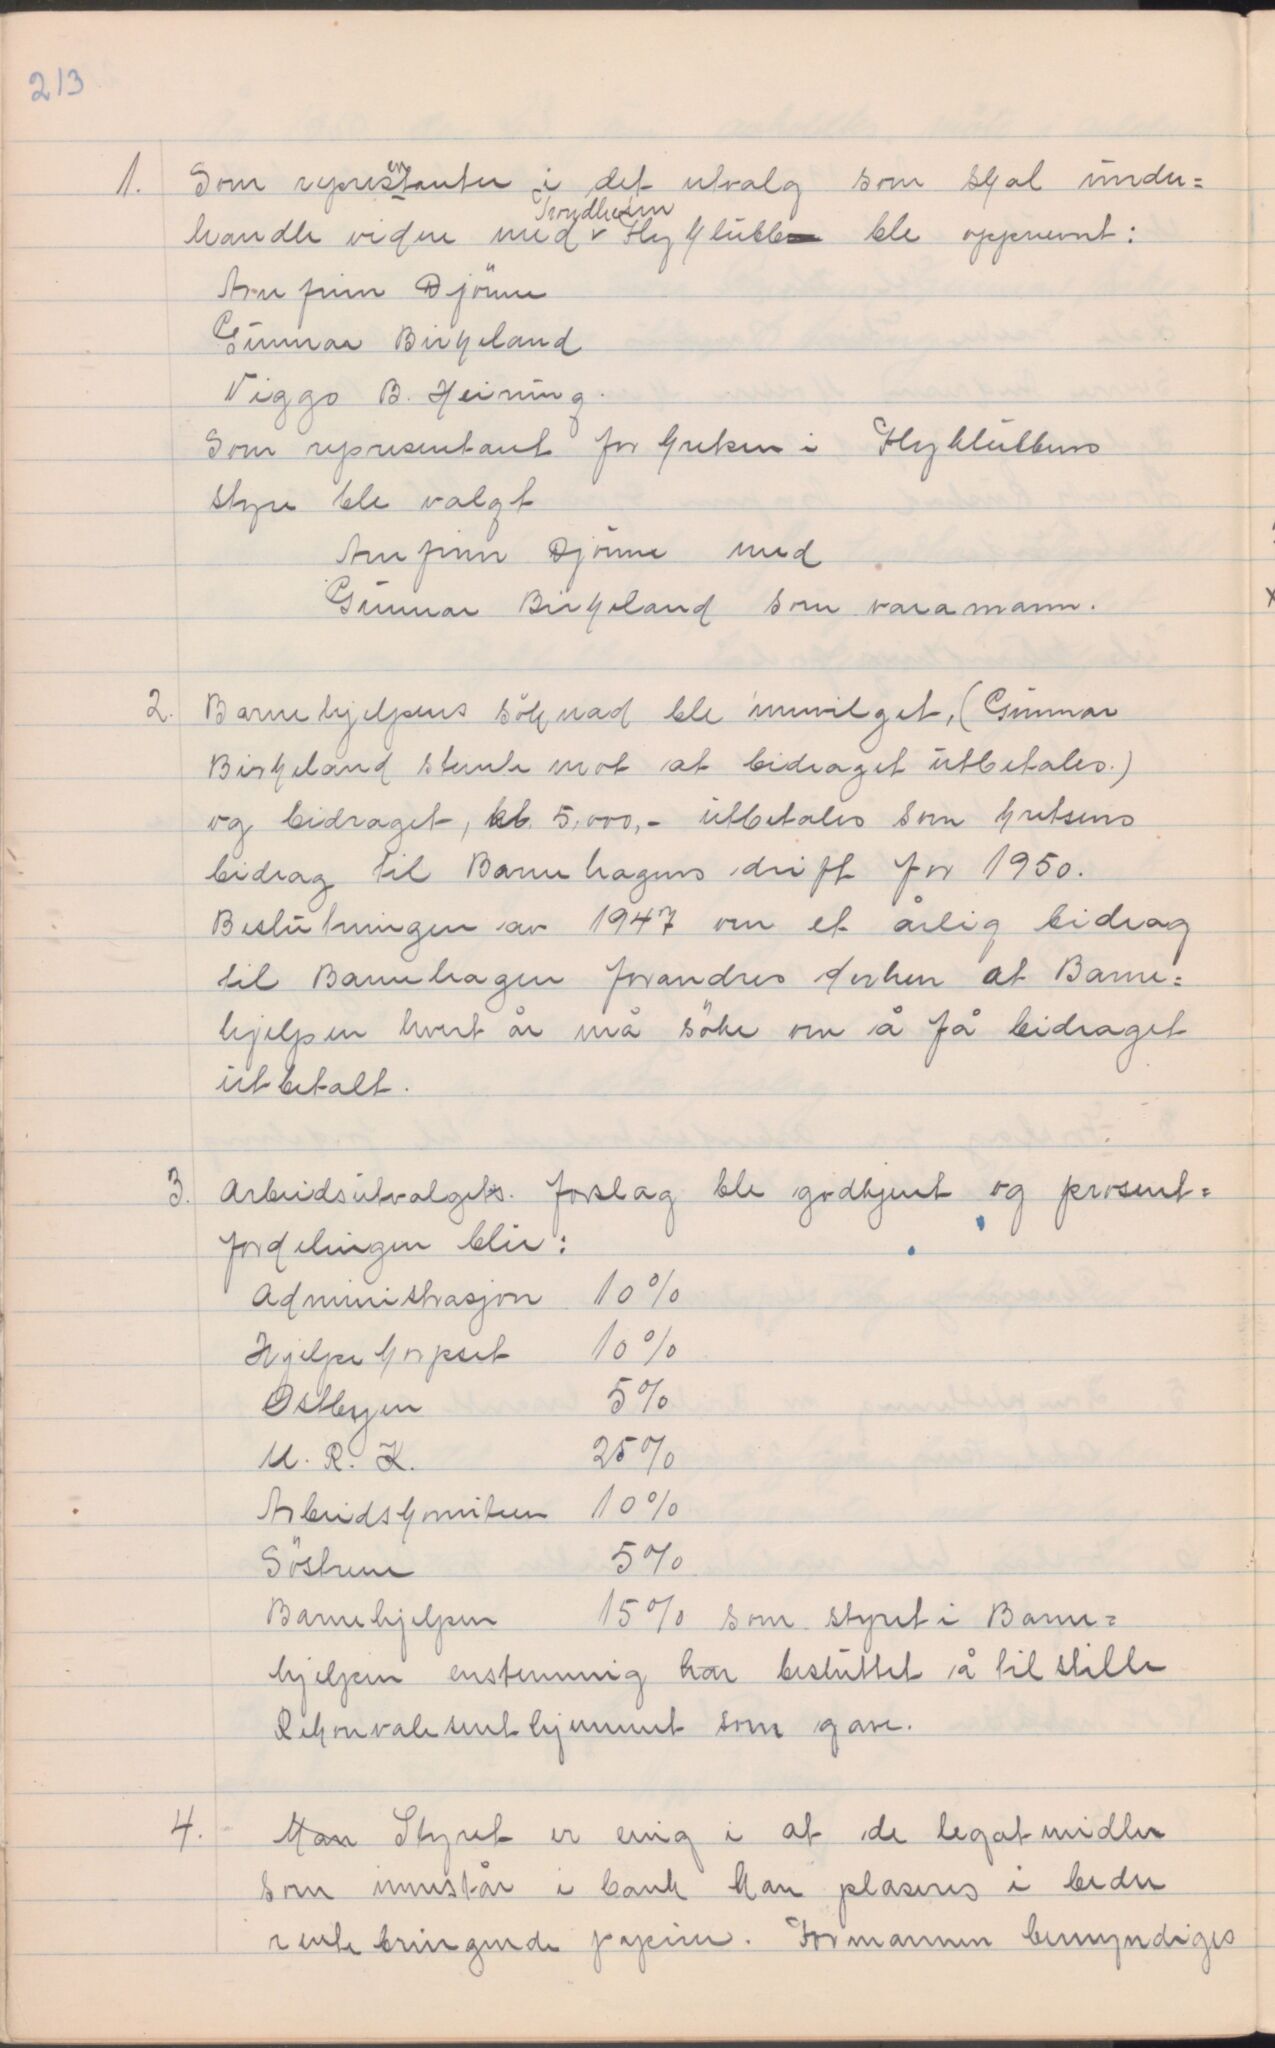 213
1. Som representanter i det utvalg som skal under=
handle videre med Trondheim Flyklubb ble oppnevnt:
Arnfinn Djönne
Gunnar Birkeland
Viggo B. Heining.
Som representant for kretsen i Flyklubbens
styre ble valgt
Arnfinn Djönne med
Gunnar Birkeland som varamann.
2. Barnehjelpens söknad ble innvilget, (Gunnar
Birkeland stemte mot at bidraget utbetales.)
og bidraget, kr. 5.000,- utbetales som kretsens
bidrag til Barnehagens drift for 1950.
Beslutningen av 1947 om et årlig bidrag
til Barnehagen forandres derhen at Barne=
hjelpen hvert år må söke om å få bidraget
utbetalt.
3. Arbeidsutvalgets forslag ble godkjent og prosent=
fordelingen blir:
Administrasjon 10%
Hjelpekorpset 10%
Östbyen 5%
U. R. K. 25%
Arbeidskomiteen 10%
Söstrene 5%
Barnehjelpen 15% som styret i Barne=
hjelpen enstemmig har besluttet å tilstille
Rekonvalesenthjemmet som gave.
4. Man Styret er enig i at de legatmidler
som innestår i bank kan plaseres i bedre
rentebringende papirer. Formannen bemyndiges